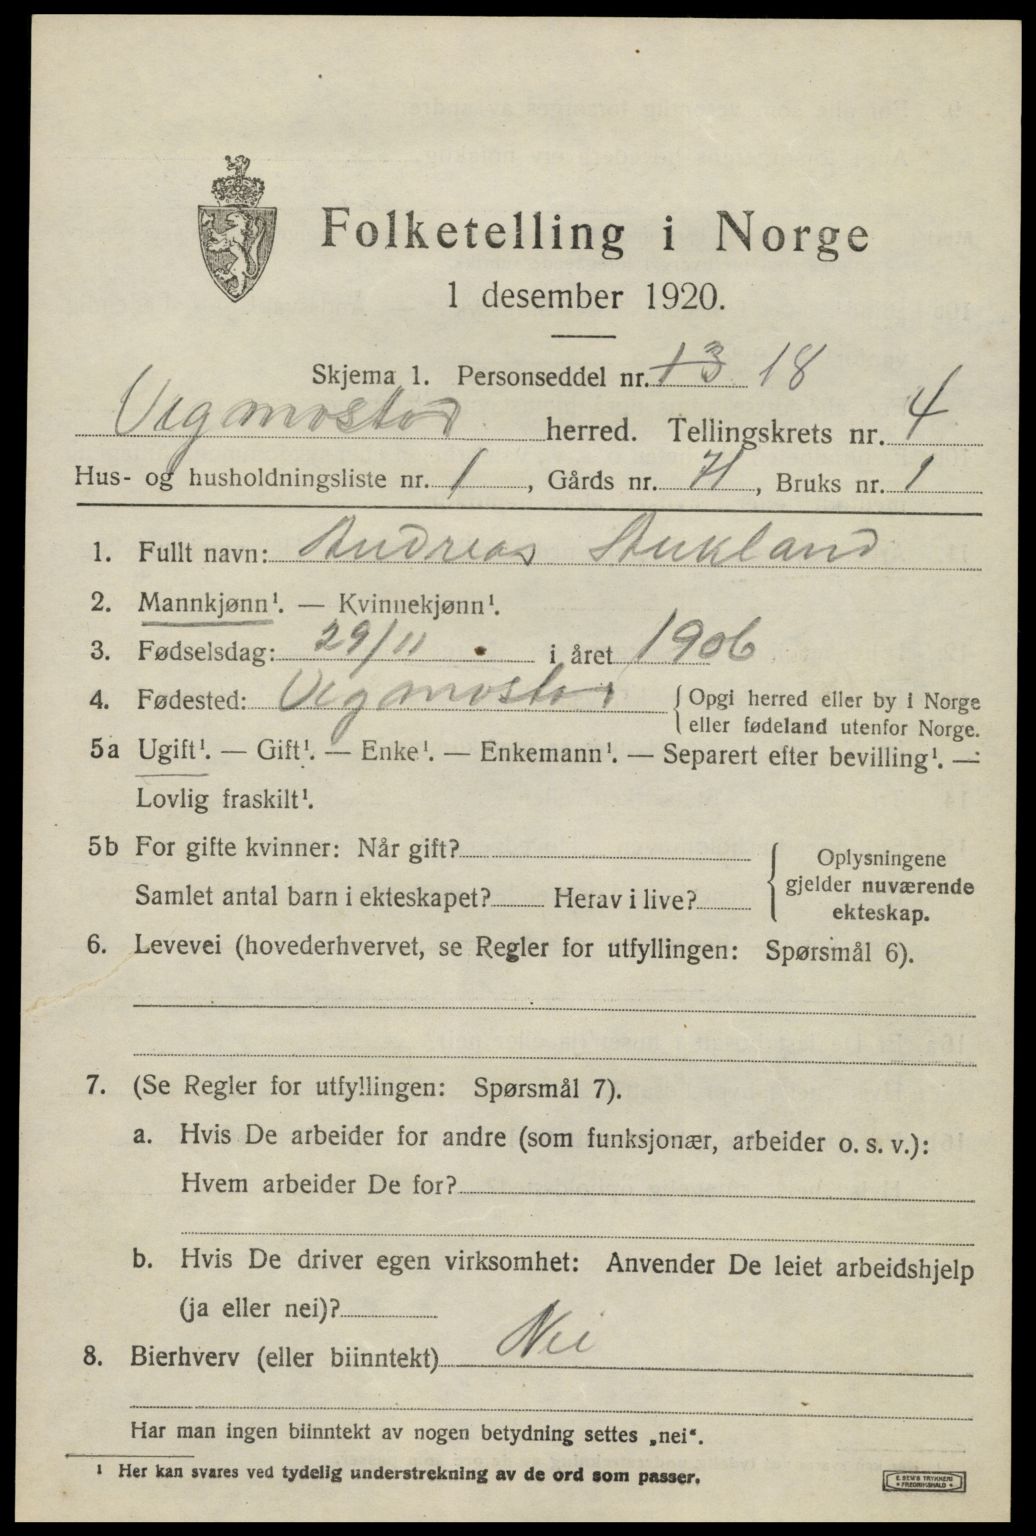 Folketelling i Norge
1 desember 1920.
Skjema 1. Personseddel nr. 13 18
Vegmostad herred. Tellingskrets nr. 4
Hus- og husholdningsliste nr. 1, Gårds nr. 71, Bruks nr. 1
1. Fullt navn: Andreas Aukland
2. Mannkjønn¹. — Kvinnekjønn¹.
3. Fødselsdag: 29/11 i året 1906
4. Fødested: Vegmostad {Opgi herred eller by i Norge
eller fødeland utenfor Norge.
5a Ugift¹. — Gift¹. — Enke¹. — Enkemann¹. — Separert efter bevilling¹. —
Lovlig fraskilt¹.
5b For gifte kvinner: Når gift?
Samlet antal barn i ekteskapet? Herav i live?
{Oplysningene
gjelder nuværende
ekteskap.
6. Levevei (hovederhvervet, se Regler for utfyllingen: Spørsmål 6).
7. (Se Regler for utfyllingen: Spørsmål 7).
a. Hvis De arbeider for andre (som funksjonær, arbeider o. s. v.):
Hvem arbeider De for?
b. Hvis De driver egen virksomhet: Anvender De leiet arbeidshjelp
(ja eller nei)?
8. Bierhverv (eller biinntekt) Nei
Har man ingen biinntekt av nogen betydning settes „nei“.
¹ Her kan svares ved tydelig understrekning av de ord som passer.
E. SEM'S TRYKKERI
FREDRIKSHALD